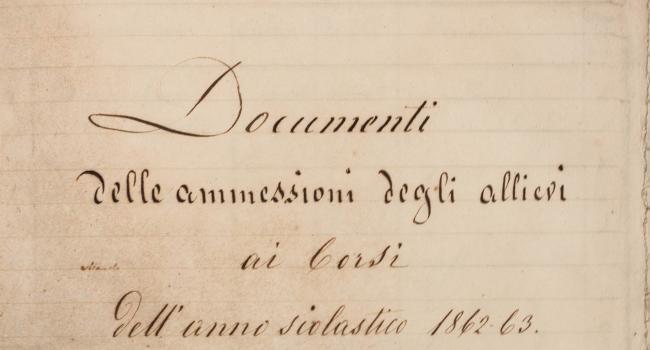 Documenti
delle ammessioni degli allievi
ai Corsi
dell'anno scolastico 1862-63.